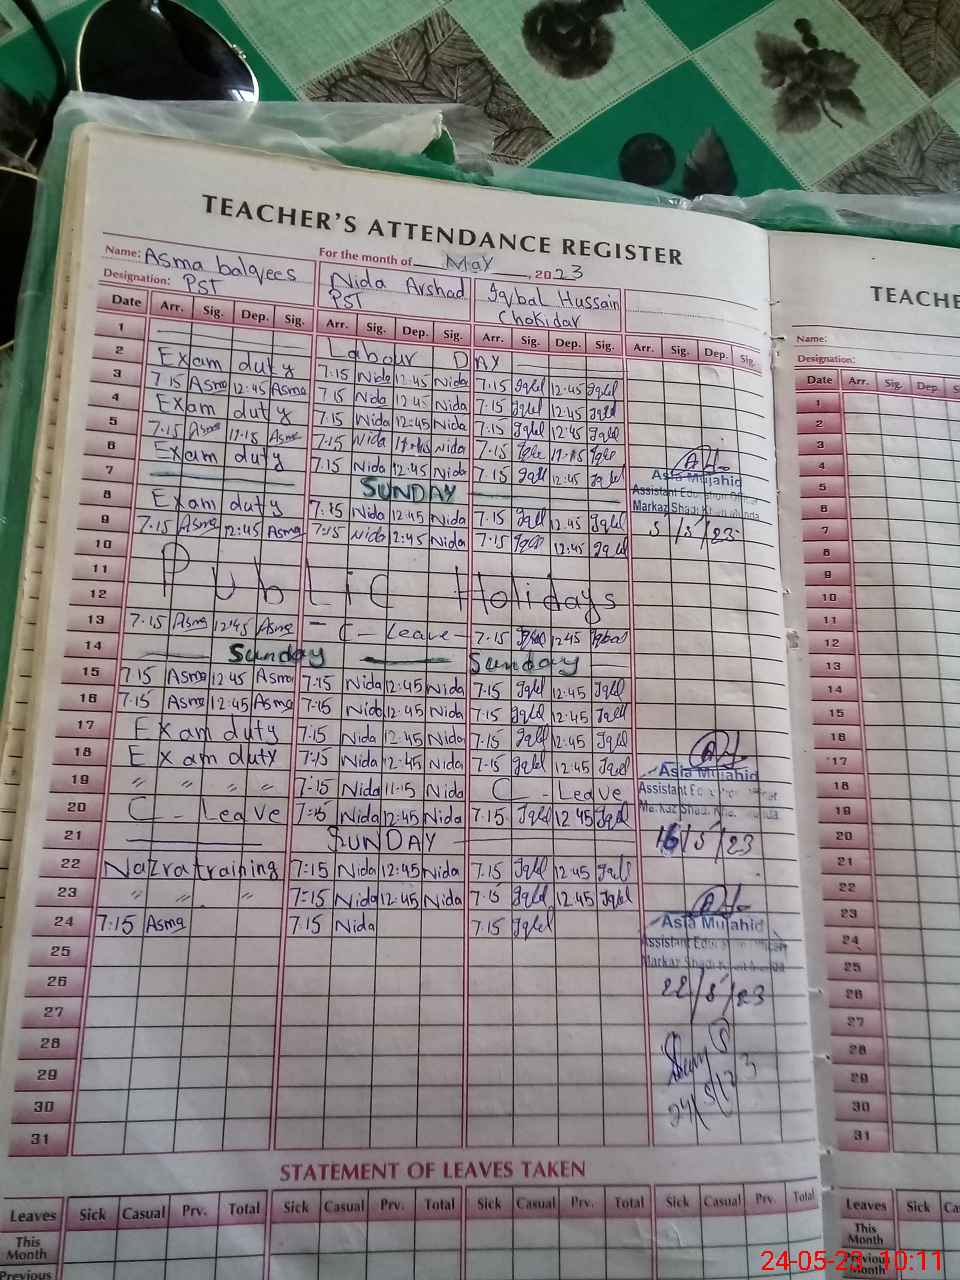 TEACHER'S ATTENDANCE REGISTER
For the month of May, 2023
Name: Asma balqees Nida Arshad Iqbal Hussain
Designation: PST PST Chokidar
Date Arr. Sig. Dep. Sig. Arr. Sig. Dep. Sig. Arr. Sig. Dep. Sig. Arr. Sig. Dep. Sig.
1 Labour DAY
2 Exam duty 7:15 Nida 12:45 Nida 7:15 Iqbl 12:45 Iqbl
3 7:15 Asma 12:45 Asma 7:15 Nida 12:45 Nida 7:15 Iqbl 12:45 Iqbl
4 Exam duty 7:15 Nida 12:45 Nida 7:15 Iqbl 12:45 Iqbl
5 7:15 Asma 11:15 Asma 7:15 Nida Nida 7:15
6 Exam duty 7:15 Nida 12:45 Nida 7:15 12:45
7 SUNDAY
8 Exam duty 7:15 Nida 12:45 Nida 7:15 Iqbl 12:45 Iqbl
9 7:15 Asma 12:45 Asma 7:15 Nida 12:45 Nida 7:15 12:45
10
11 PubLiC Holidays
12
13 7:15 Asma 12:45 Asma C - Leave - 7:15 12:45
14 Sunday Sunday
15 7:15 Asma 12:45 Asma 7:15 Nida 12:45 Nida 7:15 Iqbl 12:45 Iqbl
16 7:15 Asma 12:45 Asma 7:15 Nida 12:45 Nida 7:15 Iqbl 12:45 Iqbl
17 Exam duty 7:15 Nida 12:45 Nida 7:15 Iqbl 12:45 Iqbl
18 Exam duty 7:15 Nida 12:45 Nida 7:15 Iqbl 12:45 Iqbl
19 " " " " 7:15 Nida 11:15 Nida C - Leave
20 C - Leave 7:15 Nida 12:45 Nida 7:15 Iqbl 12:45 Iqbl
21 SUNDAY
22 Nazra training 7:15 Nida 12:45 Nida 7:15 Iqbl 12:45 Iqbl
23 " " " 7:15 Nida 12:45 Nida 7:15 Iqbl 12:45 Iqbl
24 7:15 Asma 7:15 Nida 7:15 Iqbl
25
26
27
28
29
30
31
Asia Mujahid
Assistant Education Officer
Markaz Shadi Khan Munda
5/5/23
Asia Mujahid
Assistant Education Officer
Markaz Shadi Khan Munda
16/5/23
Asia Mujahid
Assistant Education Officer
Markaz Shadi Khan Munda
22/5/23
24/5/23
STATEMENT OF LEAVES TAKEN
Leaves Sick Casual Prv. Total Sick Casual Prv. Total Sick Casual Prv. Total Sick Casual Prv. Total
This Month
Previous
TEACHE
Name:
Designation:
Date Arr. Sig. Dep. Sig
1
2
3
4
5
6
7
8
9
10
11
12
13
14
15
16
17
18
19
20
21
22
23
24
25
26
27
28
29
30
31
Leaves Sick Ca
This Month
Previous Month
24-05-23 10:11